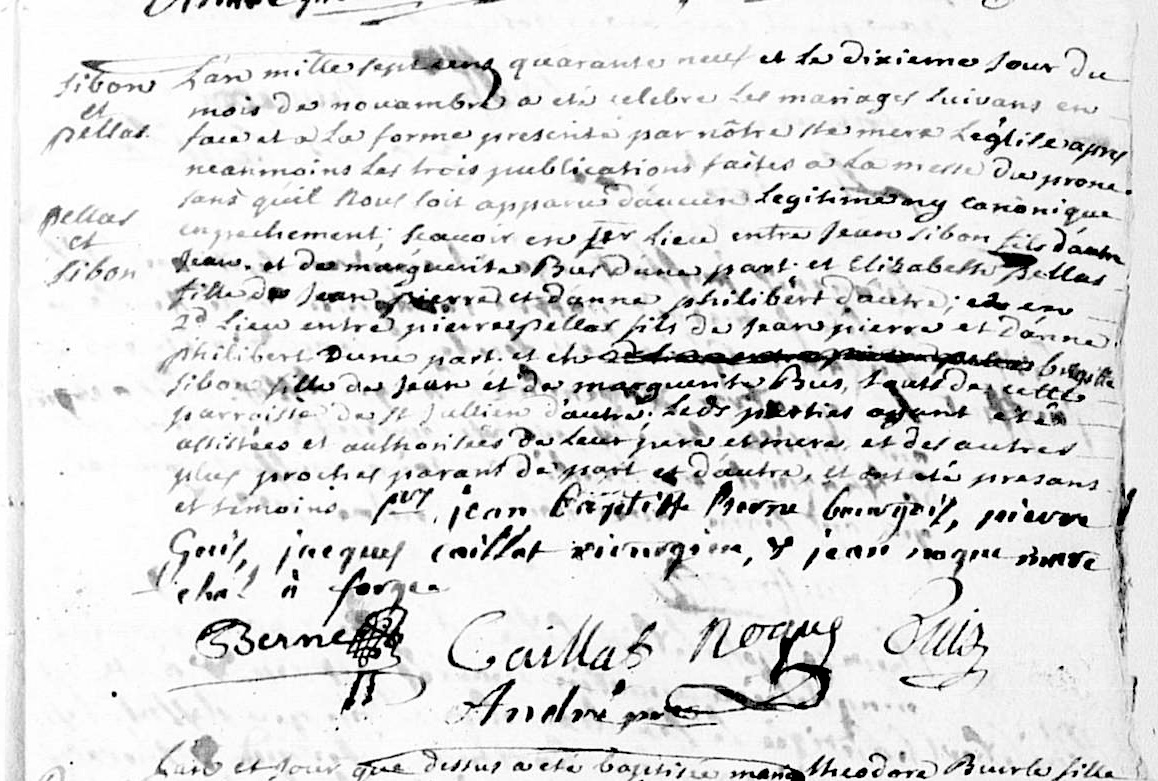 Sibon
et
pellas
pellas
et
Sibon
L'an mille sept cens quarante neuf et le dixieme jour du
mois de novambre a eté celebre les mariages suivans en
face et a la forme prescrite par nôtre ste mere Léglise apres
neanmoins les trois publications faites a la messe du prone
sans qu'il nous soit apparu d'aucun legitime ny canonique
empechement; scavoir en per lieu entre Jean Sibon fils d'autre
Jean. et de marguerite Bus d'une part. et Elizabeth pellas
fille de Jean pierre et d'anne philibért d'autre; en
2d lieu entre pierre pellas fils de Jean pierre et d'anne
philibert d'une part. et brigitte
Sibon fille de Jean et de marguerite Bus, touts de cette
parroisse de st Jullien d'autre. Leds parties ayant eté
assistées et authorisées de leur pere et mere et des autres
plus proches parans de part et d'autre, et ont eté presans
et temoins jean baptiste Berne bourgois, pierre
Guis, jacques caillat &  jean roque mare
chal à forge
Berne Caillat Roque Guis
André ptre
L'an et jour que dessus a eté baptisée marie theodore Buerle fille